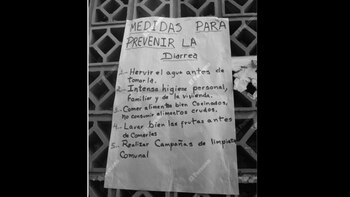 MEDIDAS PARA
PREVENIR LA
Diarrea
1- Hervir el agua antes de
tomarla.
2- Intensa higiene personal,
familiar y de la vivienda.
3- Comer alimentos bien Cocinados,
no consumir alimentos crudos.
4- Lavar bien las frutas antes
de Comerlas
5- Realizar Campañas de limpieza
Comunal